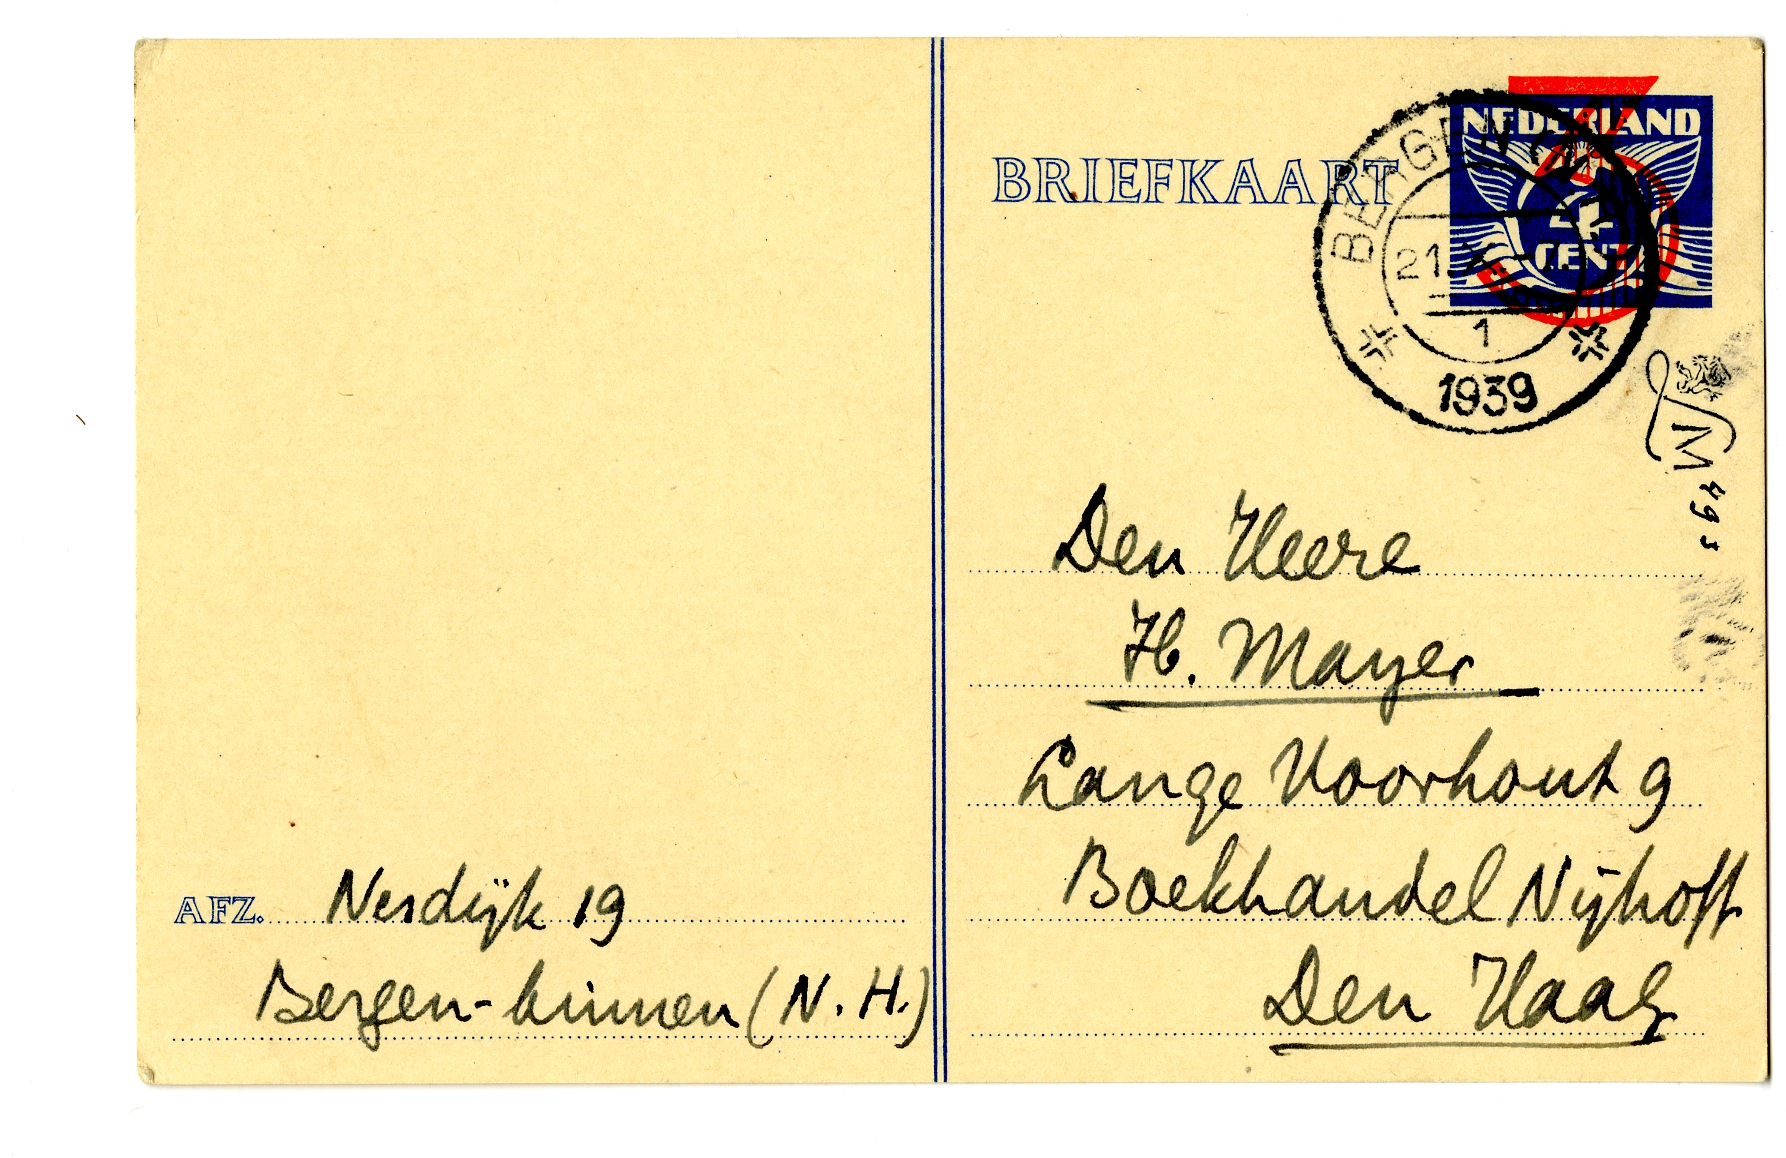 BRIEFKAART
NEDERLAND
CENT
BERGEN (N.H.)
21.
1
1939
M 493
Den Heere
H. Mayer
Lange Voorhout 9
Boekhandel Nijhoff
Den Haag
AFZ. Nesdijk 19
Bergen-binnen (N.H.)